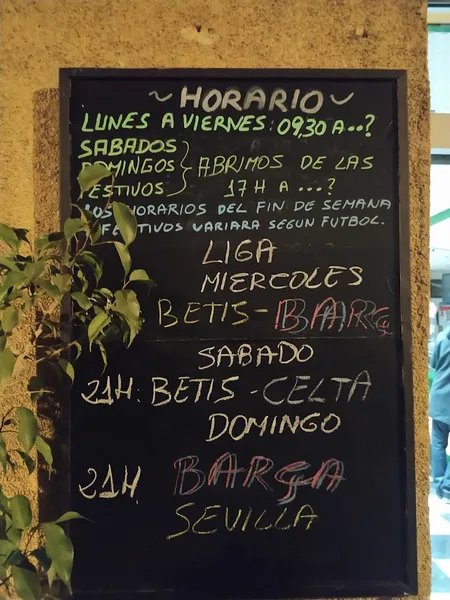 ~ HORARIO ~
LUNES A VIERNES: 09,30 A..?
SABADOS
DOMINGOS } ABRIMOS DE LAS
FESTIVOS 17 H A ...?
LOS HORARIOS DEL FIN DE SEMANA
FESTIVOS VARIARA SEGUN FUTBOL.
LIGA
MIERCOLES
BETIS - BARÇ
SABADO
21H: BETIS - CELTA
DOMINGO
21H BARÇA
SEVILLA